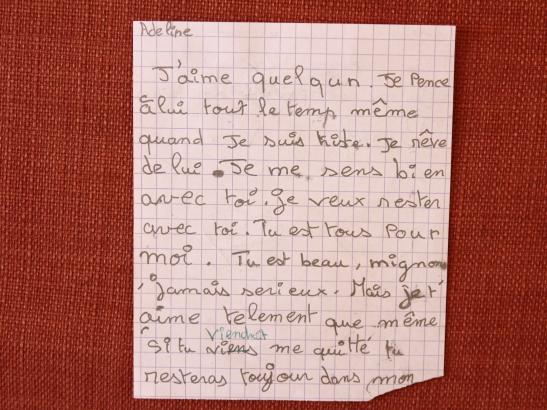 Adeline
J'aime quelqun. Je Pence
â lui tout le temp même
quand Je suis triste. Je rêve
de lui. Je me sens bien
avec toi. Je veux rester
avec toi. Tu est tous Pour
moi. Tu est beau, mignon
, jamais serieux. Mais je t'
aime telement que même
Viendrat
si tu viens me quitté tu
resteras toujour dans mon